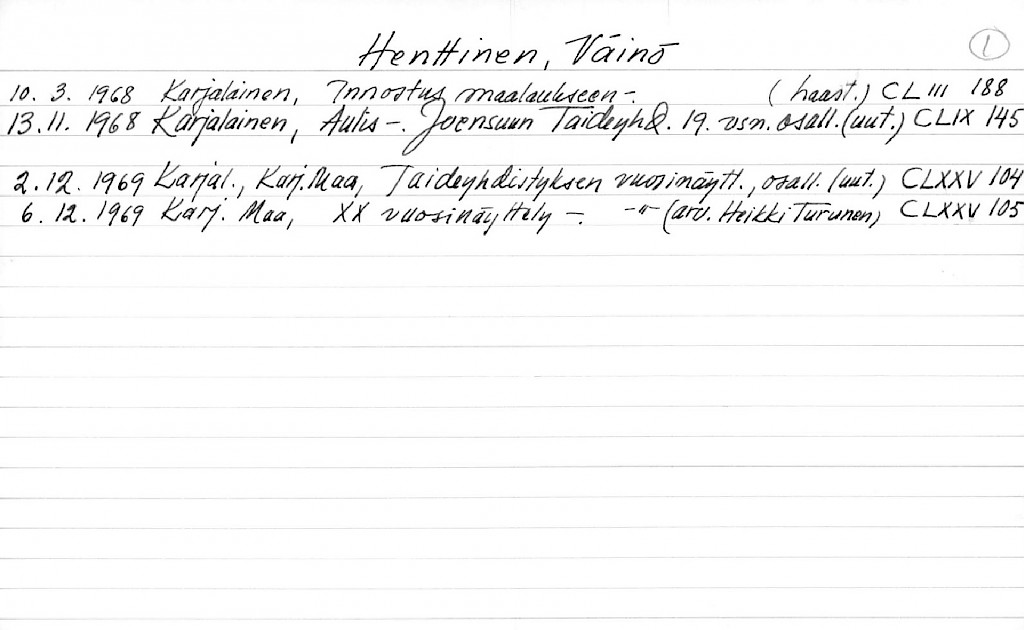 Henttinen, Väinö 1
10. 3. 1968 Karjalainen, Innostus maalaukseen -. (haast.) CLIII 188
13.11. 1968 Karjalainen, Aulis -. Joensuun Taideyhd. 19. vsn. osall. (uut.) CLIX 145
2.12. 1969 Karjal., Karj. Maa, Taideyhdistyksen vuosinäytt., osall. (uut.) CLXXV 104
6. 12. 1969 Karj. Maa, XX vuosinäyttely -. -"- (arv. Heikki Turunen) CLXXV 105